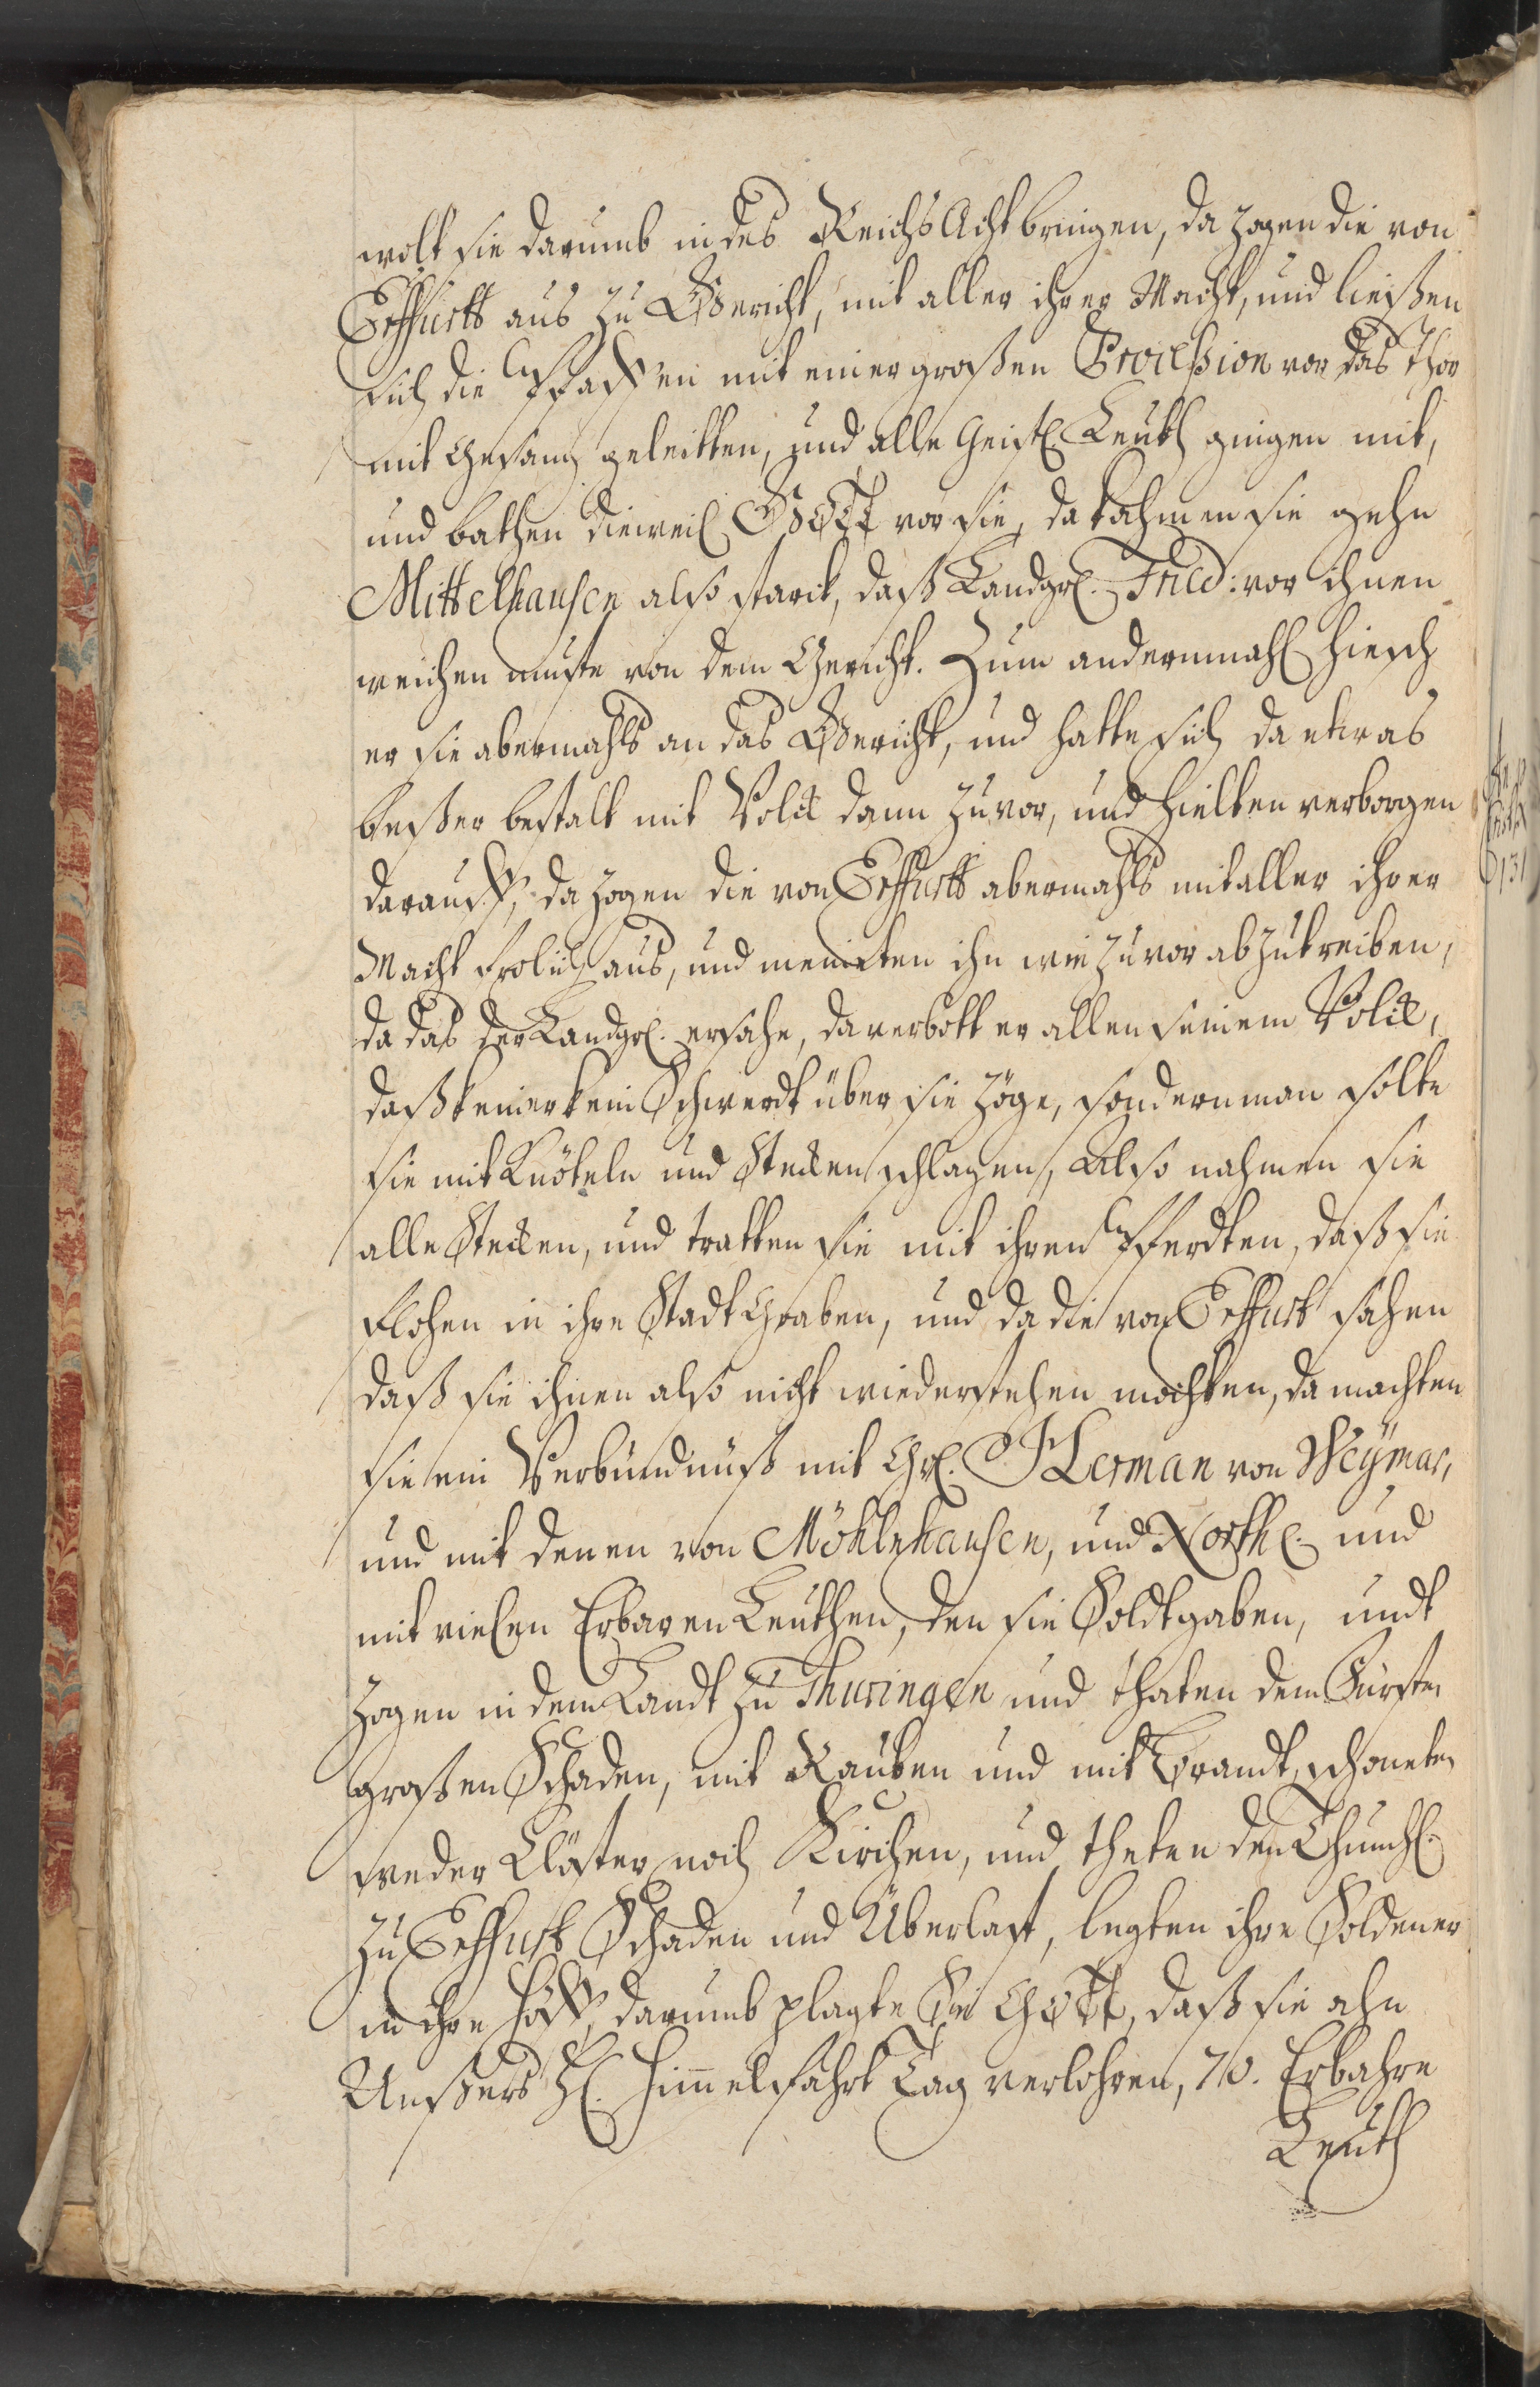 wolt sie darumb in des Reichs Acht bringen, da zogen die von
Erffurth aus zu Gericht, mit aller ihrer Macht, und ließen
sich die Pfaffen mit einer großen Proceßion vor das Thor
mit Gesang geleitten, und alle Geistl. Leuth gingen mit,
und bathen dieweil GOTT vor sie, da kahmen sie gehn
Mittelhausen also starck, daß Landgr. Frid: vor ihnen
weichen muste von dem Gericht. Zum andernmahl hiesch
er sie abermahls an das Gericht, und hatte sich da etwas
beßer bestalt mit Volck dann zuvor, und hielten verborgen
darauff, da zogen die von Erffurth abermahls mit aller ihrer
Macht frolich aus, und meineten ihn wie zuvor abzutreiben,
da das der Landgr. ersahe, da verbott er allen seinem Volck,
daß keiner kein Schwerdt über sie zöge, sondern man solte
sie mit Knöteln und Stecken schlagen, Also nahmen sie
alle Stecken, und tratten sie mit ihren Pferdten, daß sie
flohen in ihre Stadt Graben, und da die von Erffurt sahen
daß sie ihnen also nicht wiederstehen mochten, da machten
sie ein Verbündnüß mit Gr. Herman von Weÿmar,
und mit denen von Möhlnhausen, und North. und
mit vielen Erbaren Leuthen, den sie Soldt gaben, undt
zogen in dem Landt zu Thuringen und thaten dem Fürsten
großen Schaden, mit Rauben und mit Brandt, schoneten
weder Clöster noch Kirchen, und theten den Thumh.
zu Erffurt Schaden und Überlast, legten ihre Soldener
in ihre Höff, darumb plagte Sie GOTT, daß sie ahn
Unsers H. Himmelfahrt Tag verlohren, 70. Erbahre
Leuth